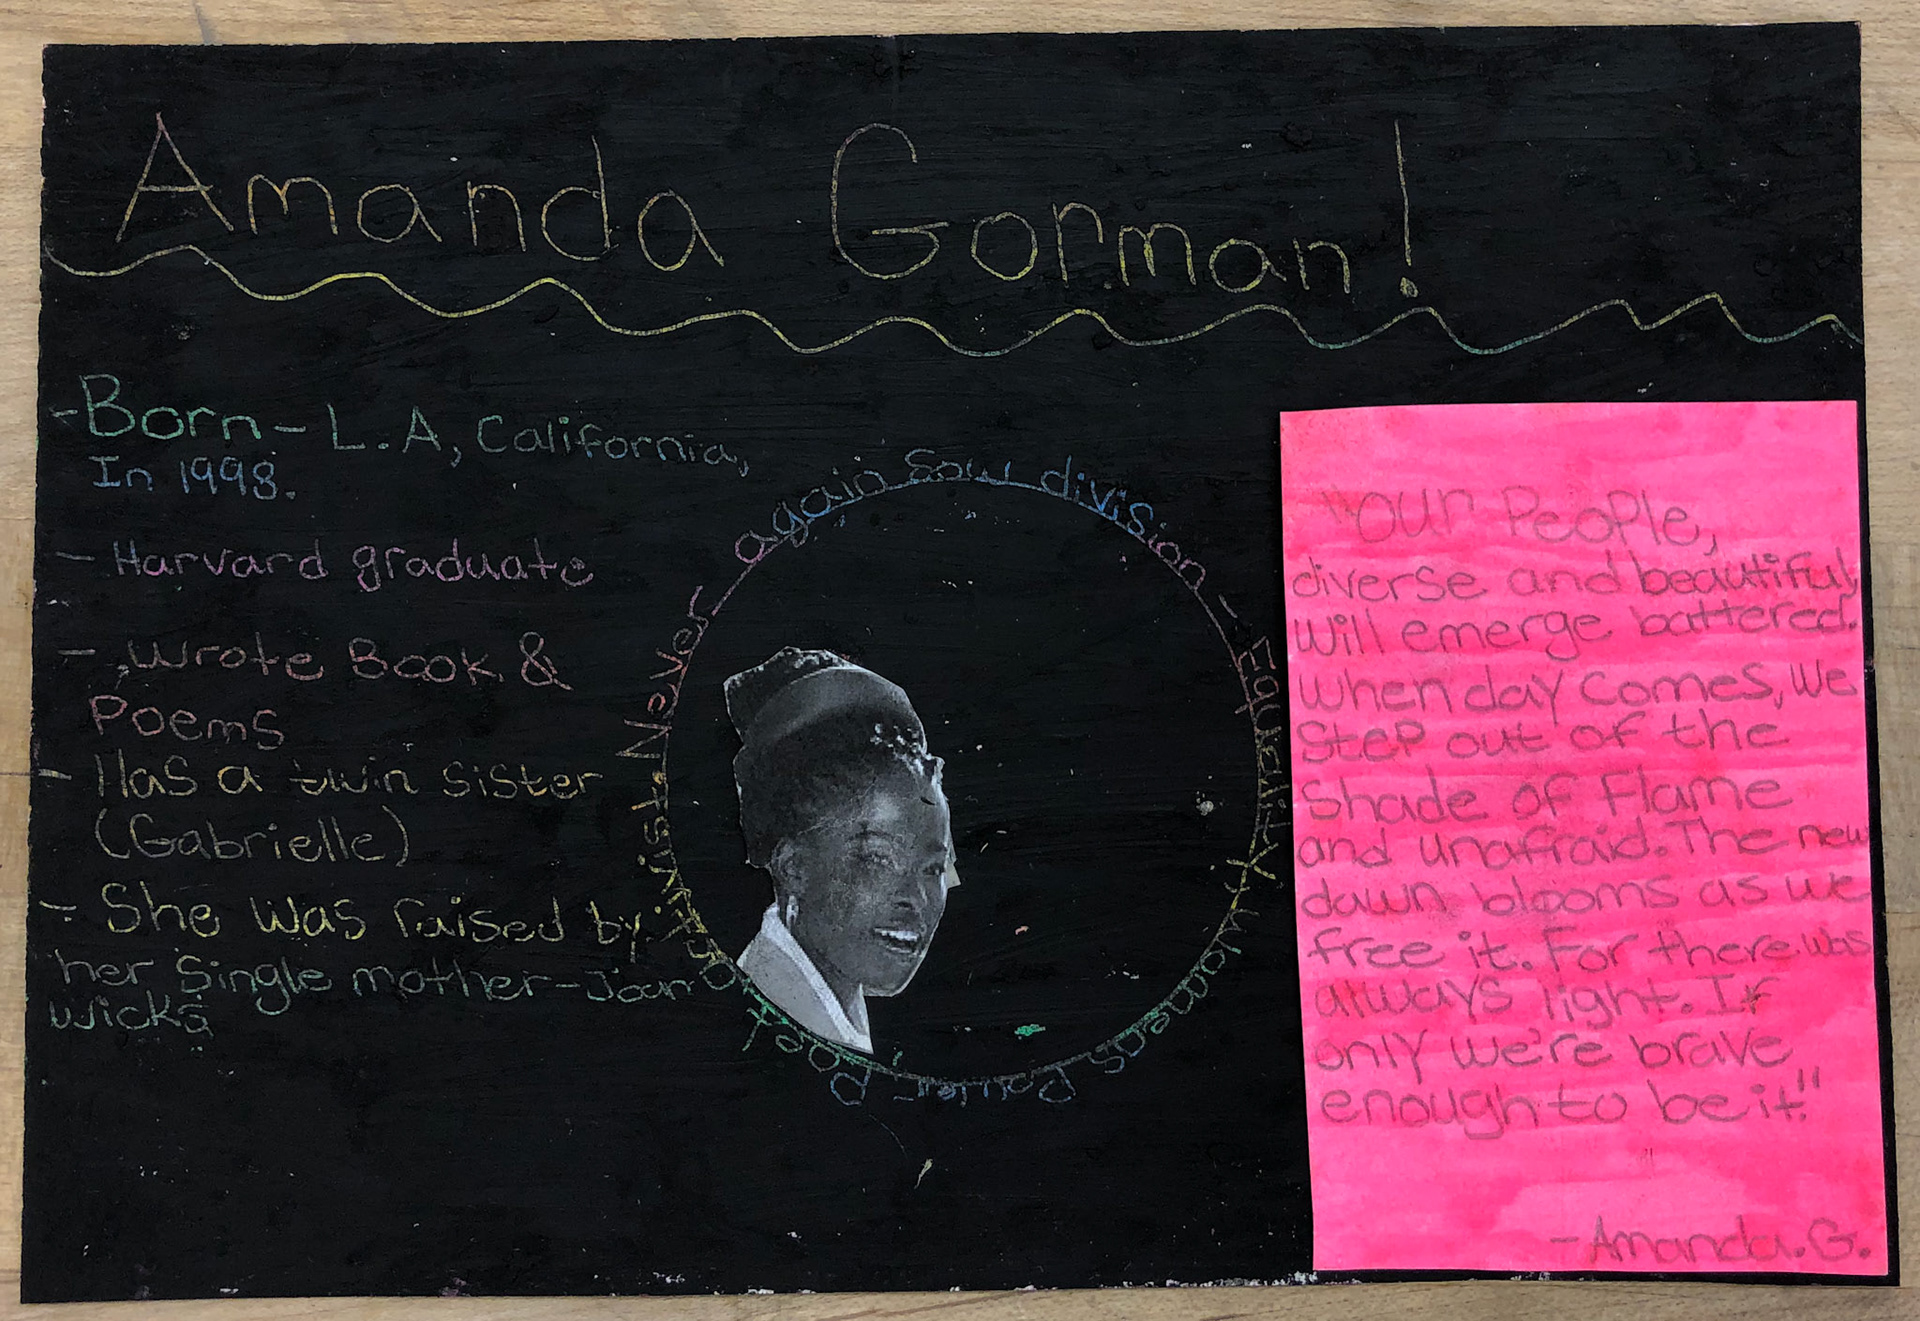 Amanda Gorman!
- Born - L.A, California,
In 1998.
- Harvard graduate
- Wrote Book &
Poems
- Has a twin sister
(Gabrielle)
- She was raised by
her single mother - Joan
wicks
Never again sow division - Equality - womens Power - Poet, activist.
"Our People,
diverse and beautiful,
will emerge battered.
when day comes, we
step out of the
shade of Flame
and unafraid. The new
dawn blooms as we
free it. For there was
always light. If
only we're brave
enough to be it."
- Amanda. G.